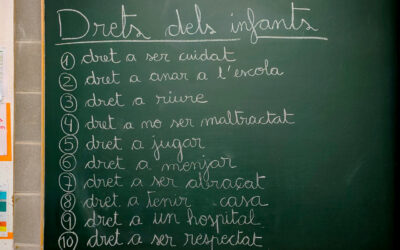 Drets dels infants
1 dret a ser cuidat
2 dret a anar a l'escola
3 dret a riure
4 dret a no ser maltractat
5 dret a jugar
6 dret a menjar
7 dret a ser abraçat
8 dret a tenir casa
9 dret a un hospital
10 dret a ser respectat